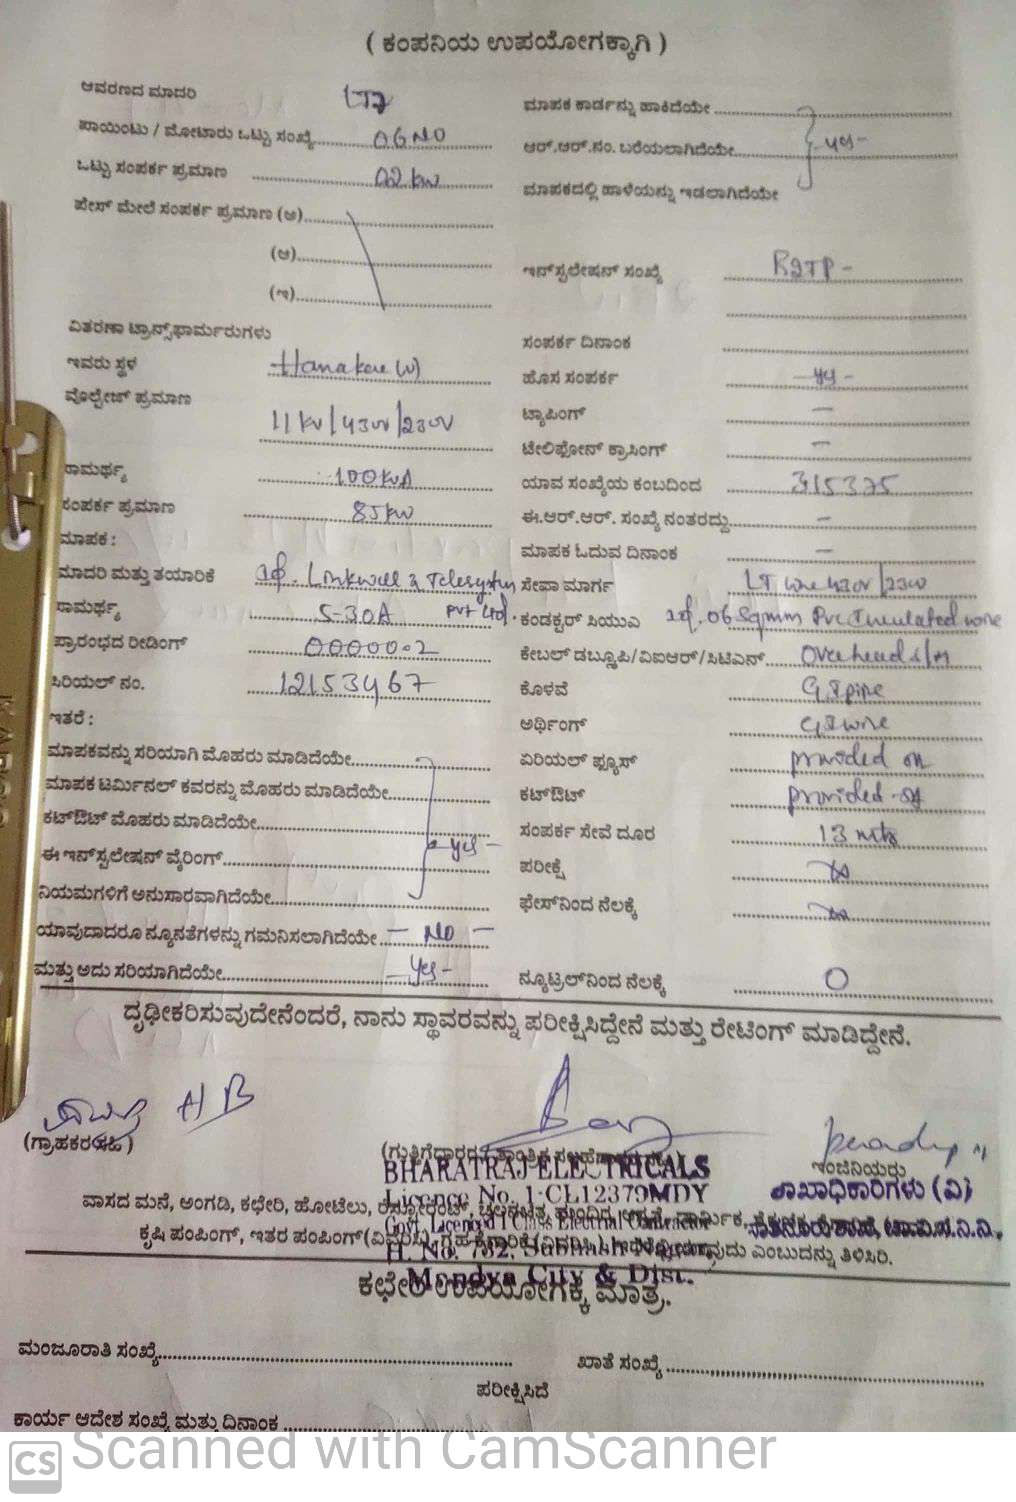 ( ಕಂಪನಿಯ ಉಪಯೋಗಕ್ಕಾಗಿ )
ಆವರಣದ ಮಾದರಿ
ಪಾಯಿಂಟು / ಮೋಟಾರು ಒಟ್ಟು ಸಂಖ್ಯೆ 06 NO
ಒಟ್ಟು ಸಂಪರ್ಕ ಪ್ರಮಾಣ 02 kw
ಪೇಸ್ ಮೇಲೆ ಸಂಪರ್ಕ ಪ್ರಮಾಣ (ಅ)
(ಆ)
(ಇ)
ವಿತರಣಾ ಟ್ರಾನ್ಸ್‌ಫಾರ್ಮರುಗಳು
ಇವರು ಸ್ಥಳ Hanakere (v)
ವೊಲ್ಟೇಜ್ ಪ್ರಮಾಣ
11 kv / 430v / 230v
ಸಾಮರ್ಥ್ಯ 100 kvA
ಸಂಪರ್ಕ ಪ್ರಮಾಣ 85 kw
ಮಾಪಕ :
ಮಾದರಿ ಮತ್ತು ತಯಾರಿಕೆ Linkwell Telesystem
Pvt Ltd.
ಸಾಮರ್ಥ್ಯ 5-30A
ಪ್ರಾರಂಭದ ರೀಡಿಂಗ್ 000000.2
ಸಿರಿಯಲ್ ನಂ. 12153467
ಇತರೆ :
ಮಾಪಕವನ್ನು ಸರಿಯಾಗಿ ಮೊಹರು ಮಾಡಿದೆಯೇ
ಮಾಪಕ ಟರ್ಮಿನಲ್ ಕವರನ್ನು ಮೊಹರು ಮಾಡಿದೆಯೇ
ಕಟ್‌ಔಟ್ ಮೊಹರು ಮಾಡಿದೆಯೇ
yes -
ಈ ಇನ್‌ಸ್ಟಲೇಷನ್ ವೈರಿಂಗ್
ನಿಯಮಗಳಿಗೆ ಅನುಸಾರವಾಗಿದೆಯೇ
ಯಾವುದಾದರೂ ನ್ಯೂನತೆಗಳನ್ನು ಗಮನಿಸಲಾಗಿದೆಯೇ - NO -
ಮತ್ತು ಅದು ಸರಿಯಾಗಿದೆಯೇ - yes -
ಮಾಪಕ ಕಾರ್ಡನ್ನು ಹಾಕಿದೆಯೇ
ಆರ್.ಆರ್.ನಂ. ಬರೆಯಲಾಗಿದೆಯೇ - yes -
ಮಾಪಕದಲ್ಲಿ ಹಾಳೆಯನ್ನು ಇಡಲಾಗಿದೆಯೇ
ಇನ್‌ಸ್ಟಲೇಷನ್ ಸಂಖ್ಯೆ
ಸಂಪರ್ಕ ದಿನಾಂಕ
ಹೊಸ ಸಂಪರ್ಕ - yes -
ಟ್ಯಾಪಿಂಗ್ -
ಟೇಲಿಫೋನ್ ಕ್ರಾಸಿಂಗ್ -
ಯಾವ ಸಂಖ್ಯೆಯ ಕಂಬದಿಂದ 315375
ಈ.ಆರ್.ಆರ್. ಸಂಖ್ಯೆ ನಂತರದ್ದು -
ಮಾಪಕ ಓದುವ ದಿನಾಂಕ -
ಸೇವಾ ಮಾರ್ಗ LT line 430v / 230v
ಕಂಡಕ್ಟರ್ ಸಿಯುವಿ 06 Sqmm Pvc Insulated wire
ಕೇಬಲ್ ಡಬ್ಲೂಪಿ/ವಿಐಆರ್/ಸಿಟಿಎನ್ Overhead
ಕೊಳವೆ G.I pipe
ಅರ್ಥಿಂಗ್ G.I wire
ಏರಿಯಲ್ ಫ್ಯೂಸ್ provided on
ಕಟ್‌ಔಟ್ provided
ಸಂಪರ್ಕ ಸೇವೆ ದೂರ 13 mts
ಪರೀಕ್ಷೆ
ಫೇಸ್‌ನಿಂದ ನೆಲಕ್ಕೆ
ನ್ಯೂಟ್ರಲ್‌ನಿಂದ ನೆಲಕ್ಕೆ 0
ದೃಢೀಕರಿಸುವುದೇನೆಂದರೆ, ನಾನು ಸ್ಥಾವರವನ್ನು ಪರೀಕ್ಷಿಸಿದ್ದೇನೆ ಮತ್ತು ರೇಟಿಂಗ್ ಮಾಡಿದ್ದೇನೆ.
H B
(ಗ್ರಾಹಕರ ಸಹಿ)
ಇಂಜಿನಿಯರು
BHARATRAJ ELECTRICALS
Licence No. 1-CL12379MDY
Govt. Licenced I Class Electrial Contractor
H. No. 732, Subhash Nagar,
Mandya City & Dist.
ಶಾಖಾಧಿಕಾರಿಗಳು (ವಿ)
ವಾಸದ ಮನೆ, ಅಂಗಡಿ, ಕಛೇರಿ, ಹೋಟೆಲು, ರೆಸ್ಟೋರೆಂಟ್, ಚಲನಚಿತ್ರ ಮಂದಿರ
ಕೃಷಿ ಪಂಪಿಂಗ್, ಇತರ ಪಂಪಿಂಗ್ (ವಿವರಿಸಿ) ಎಂಬುದನ್ನು ತಿಳಿಸಿರಿ.
ಕಛೇರಿ ಉಪಯೋಗಕ್ಕೆ ಮಾತ್ರ.
ಮಂಜೂರಾತಿ ಸಂಖ್ಯೆ
ಖಾತೆ ಸಂಖ್ಯೆ
ಪರೀಕ್ಷಿಸಿದೆ
ಕಾರ್ಯ ಆದೇಶ ಸಂಖ್ಯೆ ಮತ್ತು ದಿನಾಂಕ
CS Scanned with CamScanner